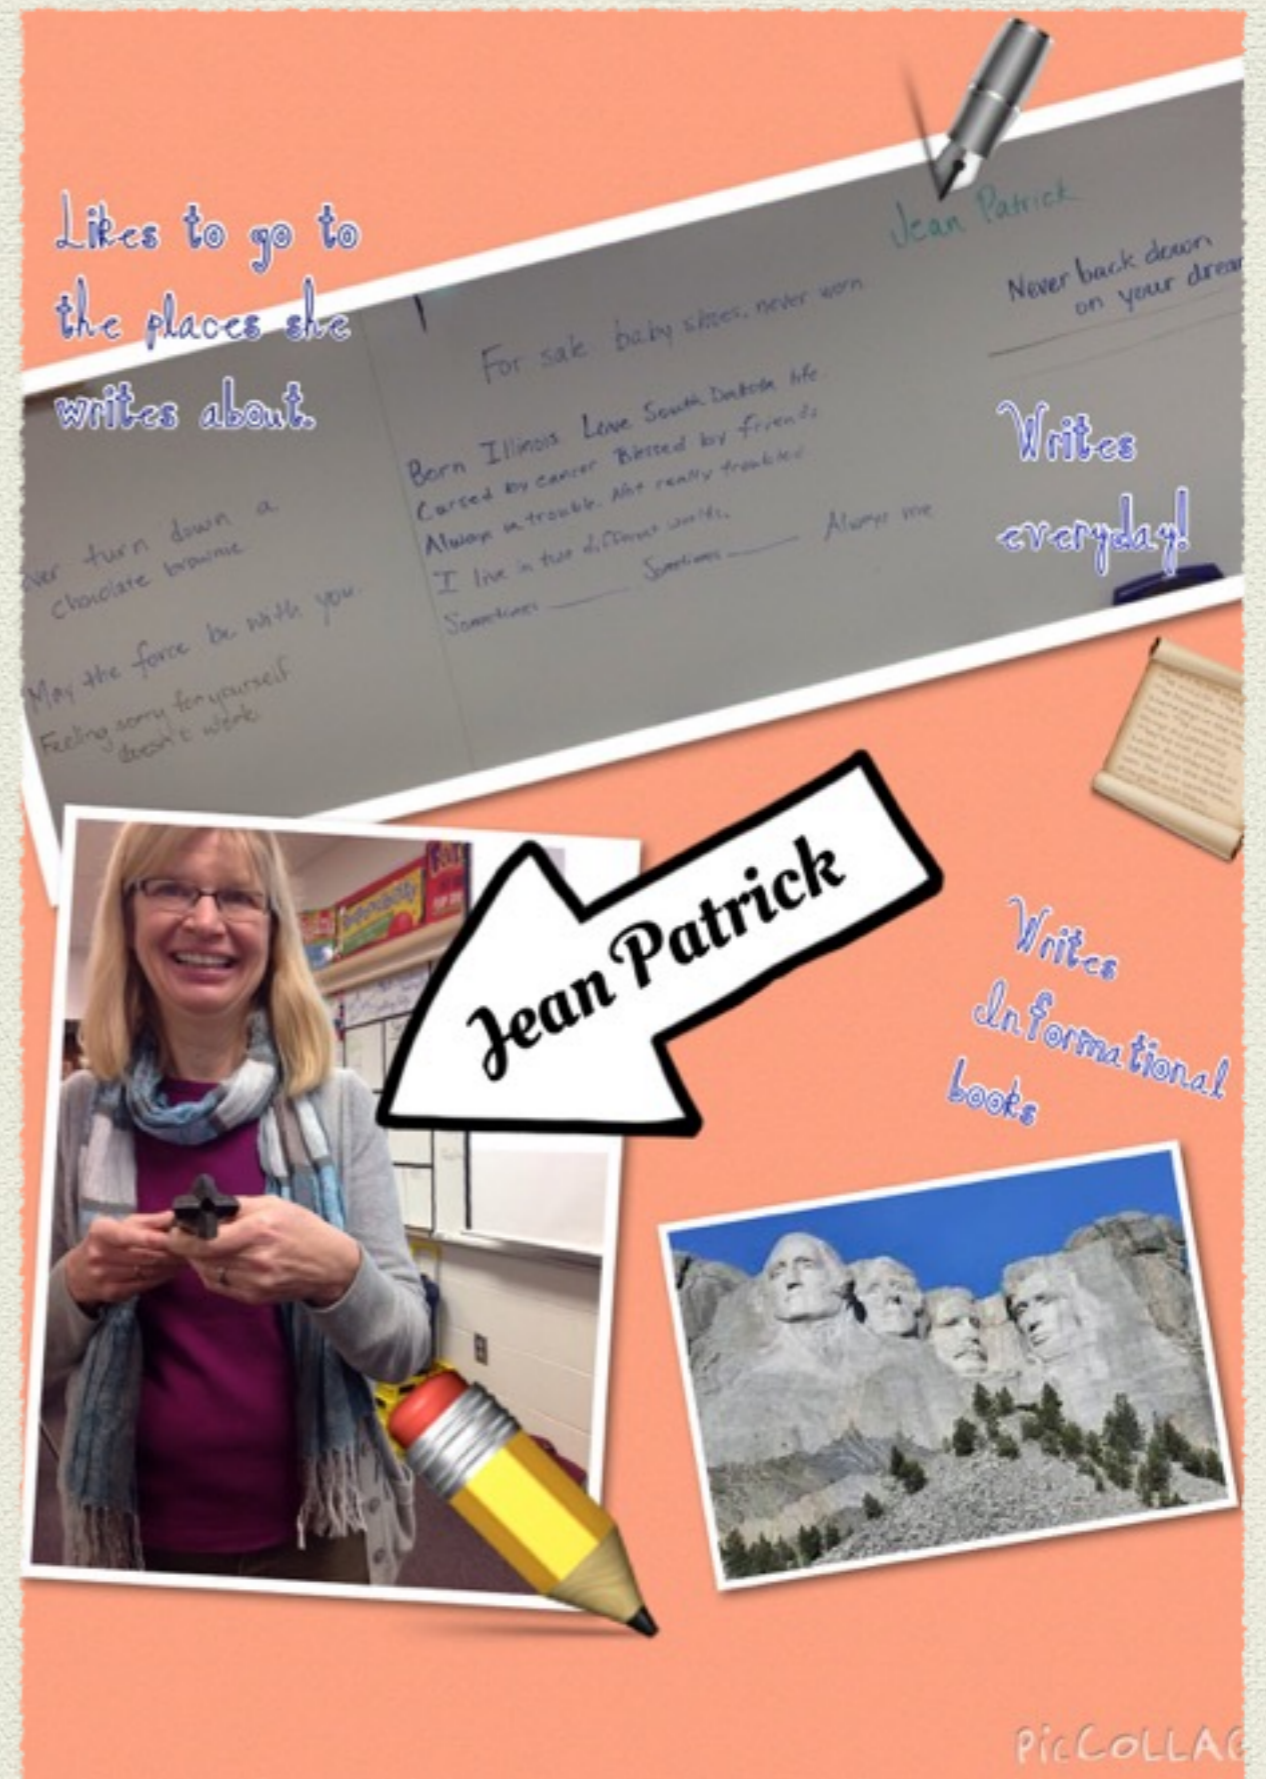 Likes to go to
the places she
writes about.
Jean Patrick
Never back down
on your
For sale: baby shoes, never worn
Born Illinois. Love South Dakota life.
Cursed by cancer. Blessed by friends
Always in trouble. Not really troubled.
I live in two different worlds.
Sometimes Sometimes Always me
turn down a
chocolate brownie
May the force be with you.
Feeling sorry for yourself
doesn't work.
Writes
everyday!
Jean Patrick
Writes
Informational
books